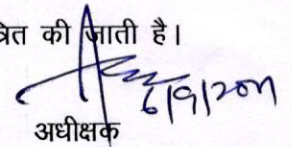 त्रित की जाती है।
6/9/2011
अधीक्षक